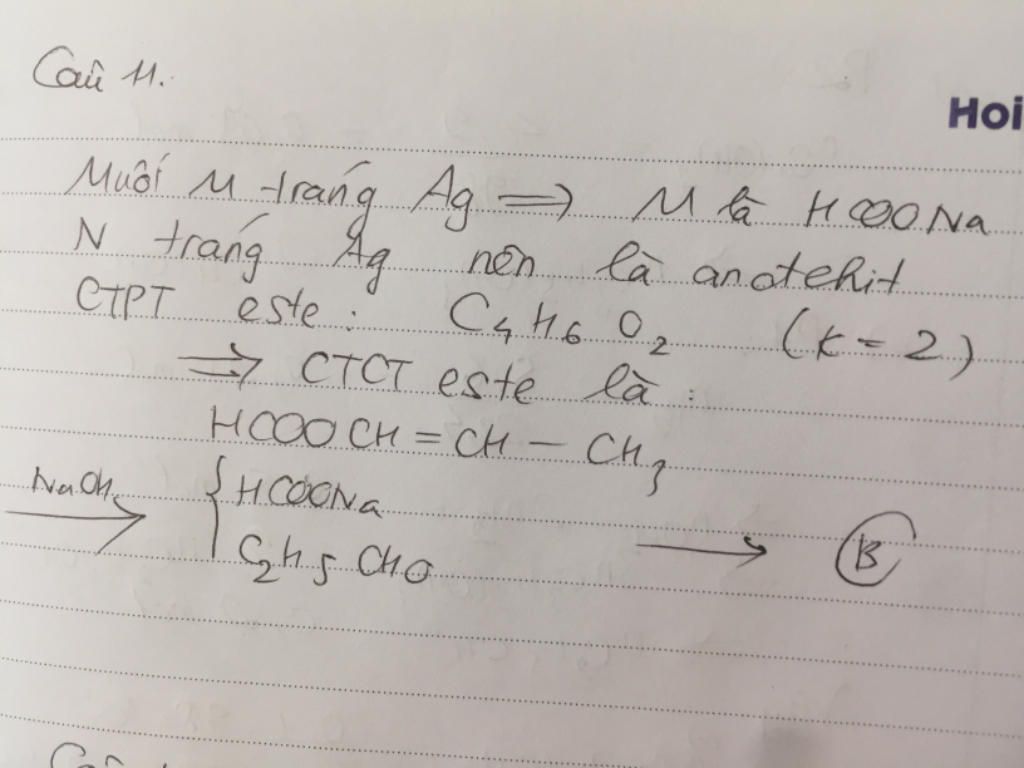 Câu 11.
Hoi
Muối M tráng Ag ⟹ M là HCOONa
N tráng Ag nên là anđehit
CTPT este : C4H6O2 (k = 2)
⟹ CTCT este là :
HCOOCH = CH – CH3
NaOH → { HCOONa
C2H5CHO → B